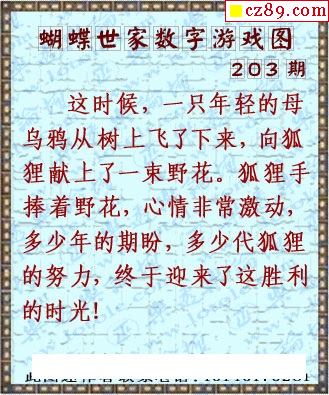 cz89.com
蝴蝶世家数字游戏图
203 期
这时候，一只年轻的母
乌鸦从树上飞了下来，向狐
狸献上了一束野花。狐狸手
捧着野花，心情非常激动，
多少年的期盼，多少代狐狸
的努力，终于迎来了这胜利
的时光！